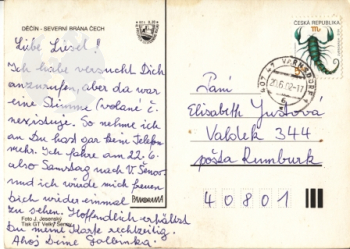 DĚČÍN - SEVERNÍ BRÁNA ČECH
Liebe Liesel!
Ich habe versucht Dich
anzurufen, aber da war
eine Stimme (volané č.
neexistuje. So nehme ich
an Du hast gar kein Telefon
mehr. Ich fahre am 22.6.
also Samstag nach V. Šenov
und ich würde mich freuen
Dich wieder einmal
zu sehen. Hoffentlich erhältst
Du meine Karte rechtzeitig.
Ahoj Deine
Foto J.
Tisk GT
PANORAMA
ČESKÁ REPUBLIKA
VARNSDORF
20.6.02-17
Paní
Elisabeth
Valdek 344
pošta Rumburk
40801